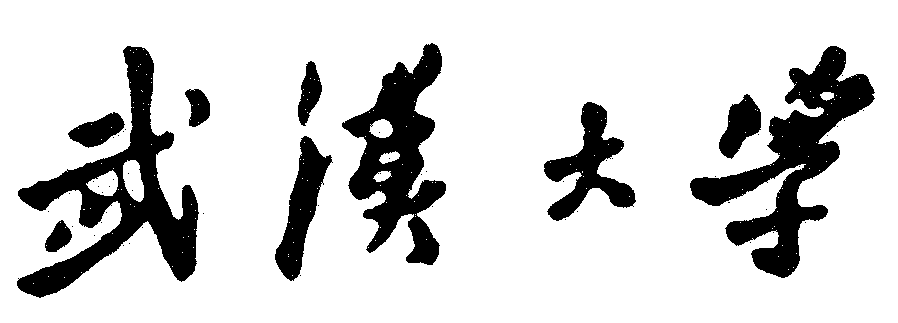 武漢大學